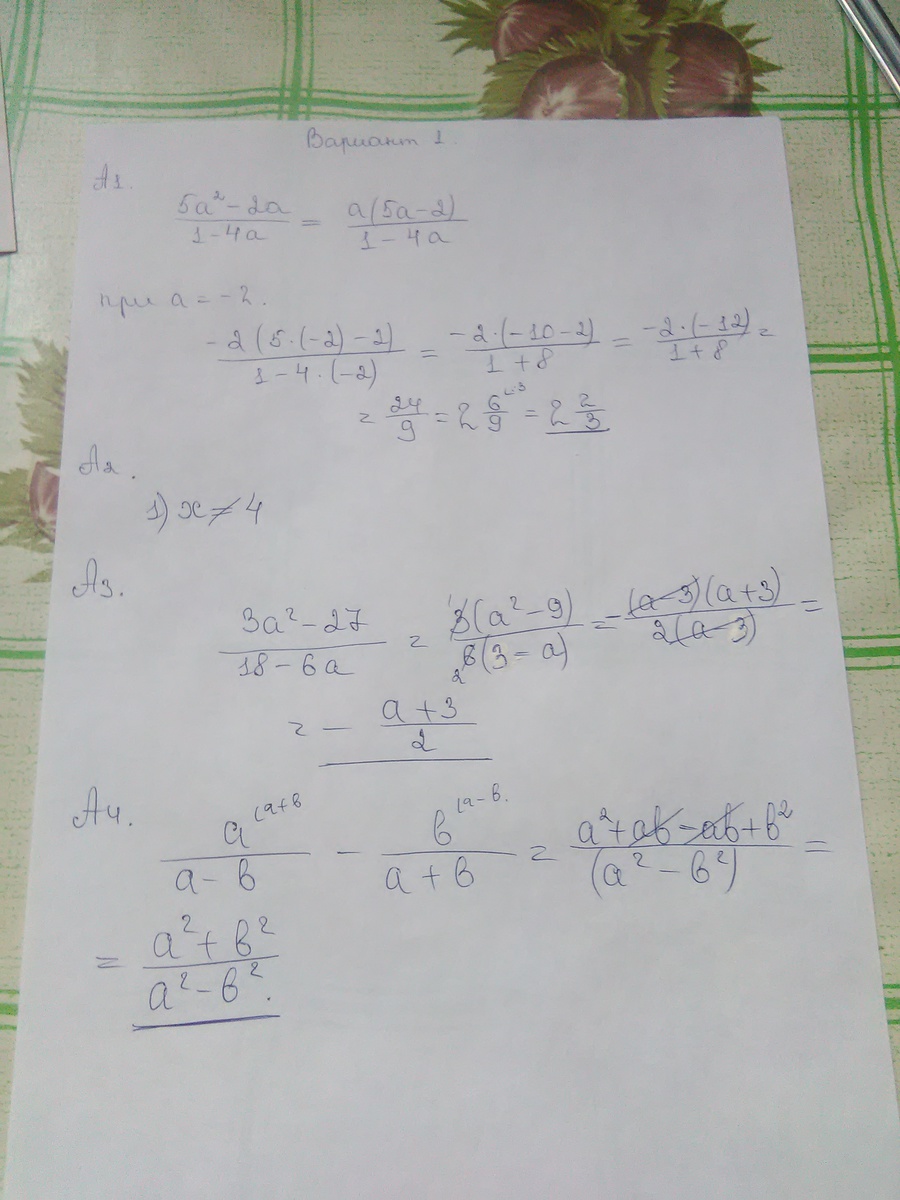 Вариант 1.
А1.
(5a² - 2a)/(1 - 4a) = a(5a - 2)/(1 - 4a)
при a = -2.
-2(5·(-2) - 2)/(1 - 4·(-2)) = -2·(-10 - 2)/(1 + 8) = -2·(-12)/(1 + 8) =
= 24/9 = 2 6/9 ᴸ:³ = 2 2/3
А2.
1) x ≠ 4
А3.
(3a² - 27)/(18 - 6a) = 3(a² - 9)/6(3 - a) = -(a - 3)(a + 3)/2(a - 3) =
= - (a + 3)/2
А4.
a/(a - в) - в/(a + в) = (a² + aв - aв + в²)/(a² - в²) =
= (a² + в²)/(a² - в²).